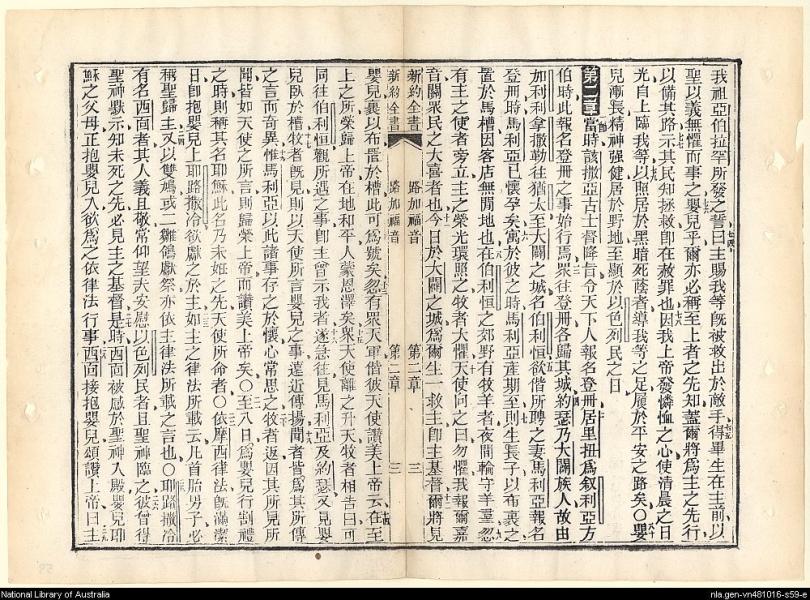 我祖亞伯拉罕所發之誓曰主賜我等旣被救出於敵手得畢生在主前以
聖以義無懼而事之嬰兒乎爾亦必稱至上者之先知蓋爾將為主之先行
以備其路示其民知拯救卽在赦罪也因我上帝發憐恤之心使清晨之日
光自上臨我等以照居於黑暗死蔭者導我等之足履於平安之路矣〇嬰
兒漸長精神强健居於野地至顯於以色列民之日
第二章當時該撒亞古士督降旨令天下人報名登冊居里扭為叙利亞方
伯時此報名登冊之事始行焉眾往登冊各歸其城約瑟乃大闢族人故由
加利利拿撒勒往猶太至大闢之城名伯利恒欲偕所聘之妻馬利亞報名
登冊時馬利亞已懷孕矣寓於彼之時馬利亞產期至則生長子以布裹之
置於馬槽因客店無閒地也在伯利恒之郊野有牧羊者夜間輪守羊羣忽
有主之使者旁立主之榮光環照之牧者大懼天使向之曰勿懼我報爾嘉
音關眾民之大喜者也今日於大闢之城為爾生一救主卽主基督爾將見
新約全書 路加福音 第二章 三
新約全書 路加福音 第二章 三
嬰兒裹以布置於槽此可為號矣忽有眾天軍偕彼天使讚美上帝云在至
上之所榮歸上帝在地和平人蒙恩澤矣眾天使離之升天牧者相告曰可
同往伯利恒觀所遇之事卽主曾示我者遂急往見馬利亞及約瑟又見嬰
兒臥於槽牧者旣見則以天使所言嬰兒之事遠近傳揚聞者皆為其所傳
之言而奇異惟馬利亞以此諸事存之於懷心常思之牧者返因其所見所
聞皆如天使之所言則歸榮上帝而讚美上帝矣〇至八日為嬰兒行割禮
之時則稱其名耶穌此名乃未妊之先天使所命者〇依摩西律法旣滿潔
日卽抱嬰兒上耶路撒冷欲獻之於主如主之律法所載云凡首胎男子必
稱聖歸主又以雙鳩或二雛鴿獻祭亦依主律法所載之言也〇耶路撒冷
有名西面者其人義且敬常仰望夫安慰以色列民者且聖神臨之彼曾得
聖神默示知未死之先必見主之基督是時西面被感於聖神入殿嬰兒耶
穌之父母正抱嬰兒入欲為之依律法行事西面接抱嬰兒頌讚上帝曰主
National Library of Australia
nla.gen-vn481016-s59-e